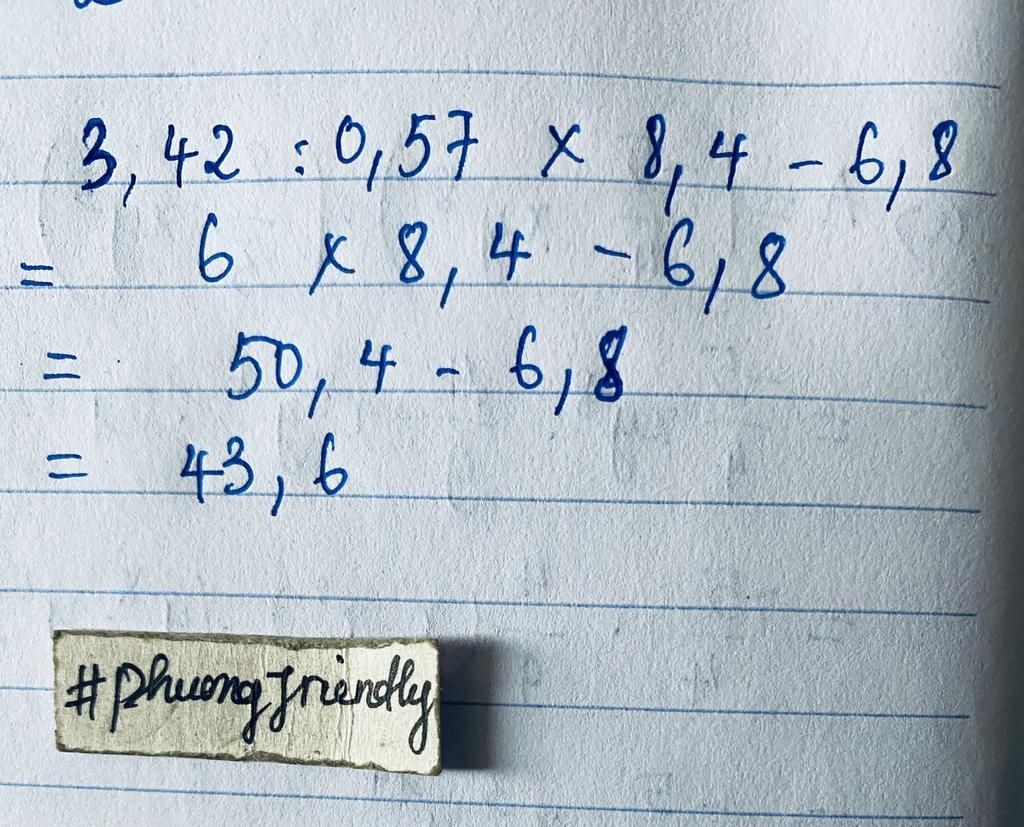 3,42 : 0,57 x 8,4 - 6,8
= 6 x 8,4 - 6,8
= 50,4 - 6,8
= 43,6
#phuongfriendly